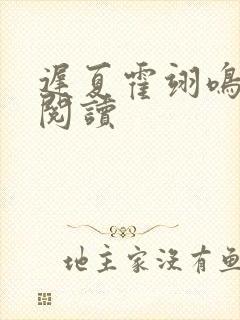 遲夏霍翊鳴
閱讀
地主家沒有魚